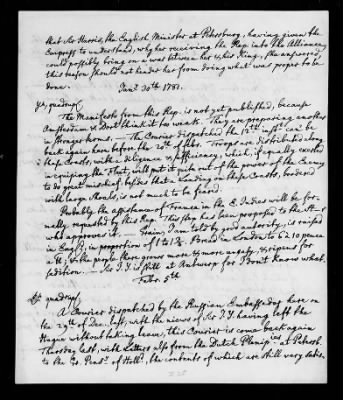 that Sir Harris, the English Minister at Petersburg, having given the
Empress to understand, why her receiving the Rep. into the Alliance
could possibly bring on a war between her & his King, she answered,
this reason should not hinder her from doing what was proper to be
done.
Jany. 30th 1781.
The Manifesto from this Rep. is not yet published, because
Amsterdam & Dort think it too weak. They are preparing another
in stronger terms. The Courier dispatched the 12th inst. can be
back again here before the 20th of Feb. Troops are distributed along
these Coasts, with a diligence & sufficiency, which, if equally exerted
in equiping the Fleet, will put it quite out of the power of the Enemy
to do great mischief: besides that a Landing on these Coasts, bordered
with large shoals, is not much to be feared.
Probably the assistance of France in the E. Indies will be for-
mally requested by this Rep. This step has been proposed to the
who approves it. Grain, I am told by good authority, is raised
in Engld. in proportion of 1 to 1 Bread in London to 6 a 10 pence
& the people there grows more & more angry, & ripens for
sedition. Sir J. Y. is still at Antwerp for I don't know what.
Febr. 5th
A Courier dispatched by the Russian Embassador here on
the 29th of Dec. last, with the news of Sir J. Y. having left the
Hague without taking leave, this Courier is come back again
Thursday last, with Letters also from the Dutch Plenip. at Petersb.
to the Gd. Pens. of Holld., the contents of which are still very satis-